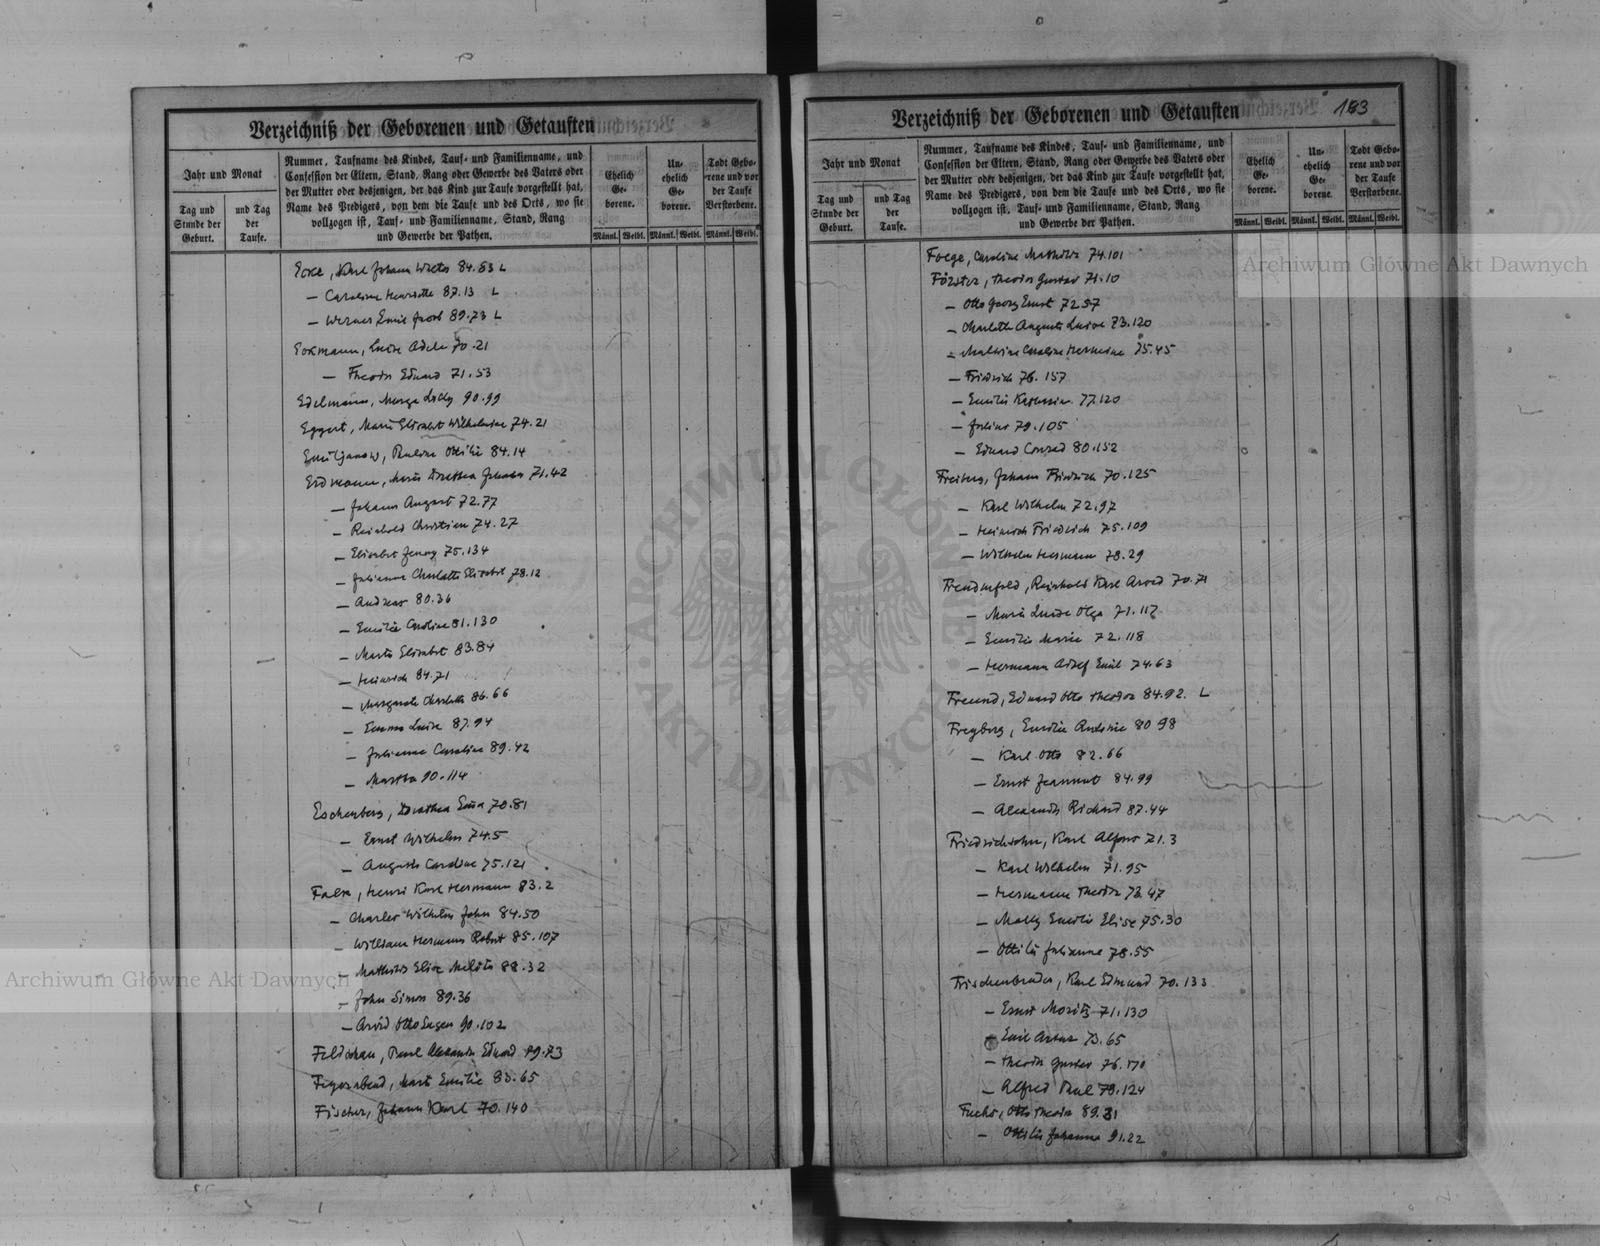 Verzeichniß der Geborenen und Getauften
Jahr und Monat
Tag und Stunde der Geburt.
und Tag der Taufe.
Nummer, Taufname des Kindes, Tauf- und Familienname, und
Confession der Eltern, Stand, Rang oder Gewerbe des Vaters oder
der Mutter oder desjenigen, der das Kind zur Taufe vorgestellt hat,
Name des Predigers, von dem die Taufe und des Orts, wo sie
vollzogen ist, Tauf- und Familienname, Stand, Rang
und Gewerbe der Pathen.
Ehelich Ge-borene.
Un-ehelich Ge-borene.
Todt Gebo-rene und vor der Taufe Verstorbene.
Männl. Weibl. Männl. Weibl. Männl. Weibl.
Karl Johann 84.63 L
— Caroline Henriette 87.13 L
— Werner Emil Jacob 89.73 L
Eckmann, Luise Adele 70.21
— Theodor Eduard 71.53
Edelmann, 90.99
Eggert, Marie Elisabet Wilhelmine 74.21
Emiljanow, Pauline Ottilie 84.14
Erdmann, Marie Dorothea Johanna 71.42
— Johann August 72.77
— Reinhold Christian 74.27
— Elisabet Jenny 75.134
— Julianne Charlotte Elisabet 78.12
— Andreas 80.36
— Emilie Caroline 81.130
— Marta Elisabet 83.84
— Heinrich 84.71
— Margarete Charlotte 86.66
— Emma Luise 87.94
— Julianne Caroline 89.42
— Martha 90.114
Eschenberg, Dorothea 70.81
— Ernst Wilhelm 74.5
— Auguste Caroline 75.121
Falk, Henri Karl Hermann 83.2
— Charles Wilhelm John 84.50
— William Hermann Robert 85.107
— Mathilde Elise 88.32
— John Simon 89.36
— Arvid Otto Eugen 90.102
Paul Alexander Eduard 89.73
Marie Emilie 83.65
Fischer, Johann Karl 70.140
Verzeichniß der Geborenen und Getauften
183
Jahr und Monat
Tag und Stunde der Geburt.
und Tag der Taufe.
Nummer, Taufname des Kindes, Tauf- und Familienname, und
Confession der Eltern, Stand, Rang oder Gewerbe des Vaters oder
der Mutter oder desjenigen, der das Kind zur Taufe vorgestellt hat,
Name des Predigers, von dem die Taufe und des Orts, wo sie
vollzogen ist, Tauf- und Familienname, Stand, Rang
und Gewerbe der Pathen.
Ehelich Ge-borene.
Un-ehelich Ge-borene.
Todt Gebo-rene und vor der Taufe Verstorbene.
Männl. Weibl. Männl. Weibl. Männl. Weibl.
Foege, Caroline Mathilde 74.101
Förster, Theodor Gustav 71.10
— Otto Georg Ernst 72.57
— Charlotte Auguste Luise 73.120
— Malwine Caroline Hermine 75.45
— Friedrich 76.157
— Emilie 77.120
— Julius 79.105
— Eduard Conrad 80.152
Freiberg, Johann Friedrich 70.125
— Karl Wilhelm 72.97
— Heinrich Friedrich 75.109
— Wilhelm Hermann 78.29
Freudenfeld, Reinhold Karl Arved 70.71
— Marie Luise Olga 71.117
— Emilie Marie 72.118
— Hermann Adolf Emil 74.63
Freund, Eduard Otto Theodor 84.92. L
Freyberg, Emilie 80.98
— Karl Otto 82.66
— Ernst Jeannot 84.99
— Alexander Richard 87.44
Friedrichsohn, Karl Alfons 71.3
— Karl Wilhelm 71.95
— Hermann Theodor 73.47
— Molly Emilie Elise 75.30
— Ottilie Julianne 78.55
Frischenbruder, Karl Edmund 70.133
— Ernst Moritz 71.130
— Emil 73.65
— Theodor Gustav 76.170
— Alfred Paul 79.124
Fuchs, Otto Theodor 89.31
— Ottilie Johanna 91.22
Archiwum Główne Akt Dawnych
Archiwum Główne Akt Dawnych
ARCHIWUM GŁÓWNE AKT DAWNYCH